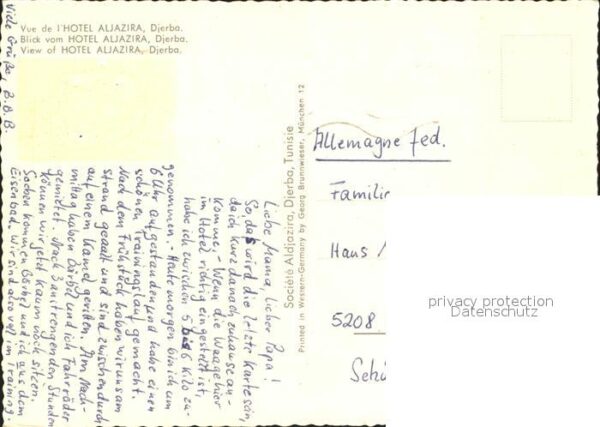 Vue de l'HOTEL ALJAZIRA, Djerba.
Blick vom HOTEL ALJAZIRA, Djerba.
View of HOTEL ALJAZIRA, Djerba.
Liebe Mama, lieber Papa!
So, das wird die letzte Karte sein,
da ich kurz danach zuhause an-
komme. - Wenn die Waage hier
im Hotel richtig eingestellt ist,
habe ich zwischen 5 bis 6 Kilo zu-
genommen. Heute morgen bin ich um
6 Uhr aufgestanden und habe einen
schönen Trainingslauf gemacht.
Nach dem Frühstück haben wir uns am
Strand geaalt und sind zwischendurch
auf einem Kamel geritten. Am Nach-
mittag haben Bärbel und ich Fahrräder
gemietet. Nach 3 anstrengenden Stunden
können wir jetzt kaum noch sitzen.
Soeben kommen Bärbel und ich aus dem
Eisenbad. Wir sind also voll im Training.
Viele Grüße, B.B.B
Société Aldjazira, Djerba, Tunisie
Printed in Western-Germany by Georg Brunnwieser, München 12
Allemagne fed.
Familie
Haus
5208
privacy protection
Datenschutz